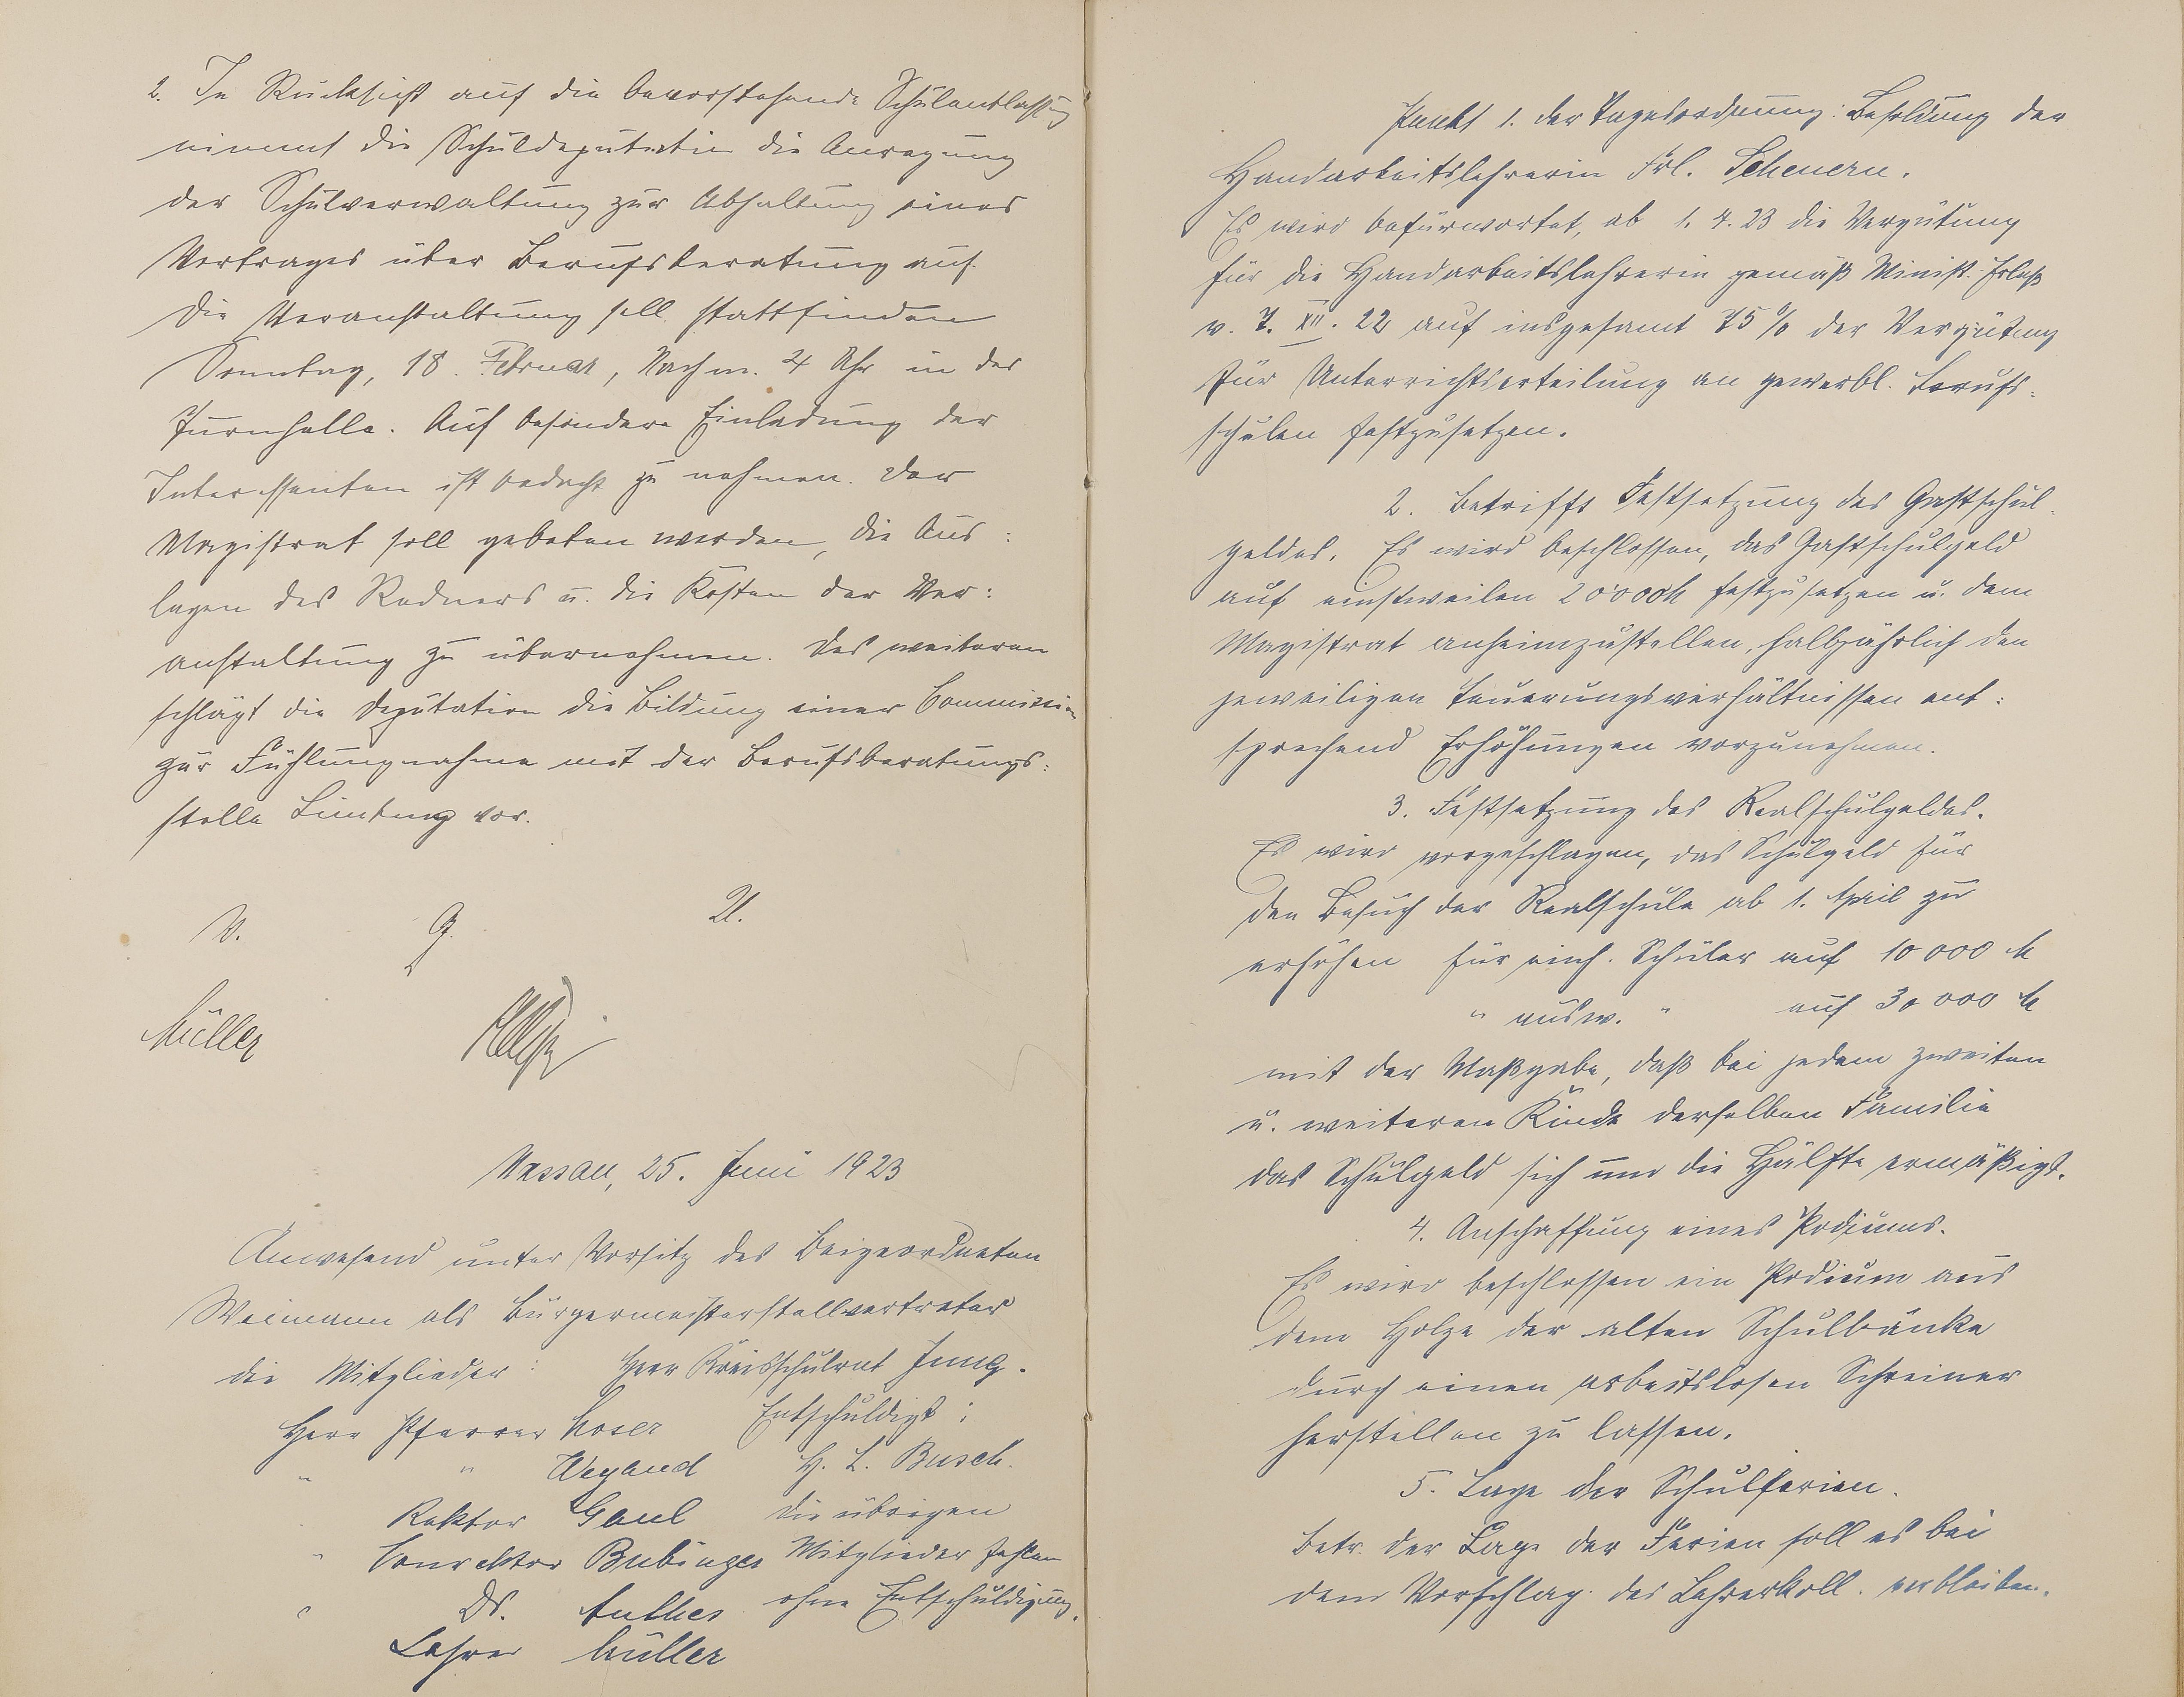 2. In Rücksicht auf die bevorstehende Schulentlassung
nimmt die Schuldeputation die Anregung
der Schulverwaltung zur Abhaltung eines
Vortrages über Berufsberatung auf.
Die Veranstaltung soll stattfinden
Sonntag, 18. Februar, Nachm. 4 Uhr in der
Turnhalle. Auf besondere Einladung der
Interessenten ist bedacht zu nehmen. Der
Magistrat soll gebeten werden, die Aus:
lagen des Redners u. die Kosten der Ver:
anstaltung zu übernehmen. Des weiteren
schlägt die Deputation die Bildung einer Commission
zur Fühlungnahme mit der Berufsberatungs:
stelle Limburg vor.
V. G. U.
Müller
Nassau, 25. Juni 1923
Anwesend unter Vorsitz des Beigeordneten
Weimann als Bürgermeisterstellvertreter
die Mitglieder: Herr Kreisschulrat Jung.
Herr Pfarrer Moser Entschuldigt:
" " Weyland H. L. Busch.
Rektor Gaul Die übrigen
" Conrektor Bubinger Mitglieder fehlen
" Dr. Anthes ohne Entschuldigung.
Lehrer Müller
Punkt 1. der Tagesordnung: Besoldung der
Handarbeitslehrerin Frl. Scheuern.
Es wird befürwortet, ab 1. 4. 23 die Vergütung
für die Handarbeitslehrerin gemäß Minist. Erlaß
v. 7. XII. 22 auf insgesamt 75% der Vergütung
für Unterrichtserteilung an gewerbl. Berufs:
schulen festzusetzen.
2. Betrifft Festsetzung des Gastschul-
geldes. Es wird beschlossen, das Gastschulgeld
auf einstweilen 20000 M festzusetzen u. dem
Magistrat anheimzustellen, halbjährlich den
jeweiligen Teuerungsverhältnissen ent:
sprechend Erhöhungen vorzunehmen.
3. Festsetzung des Realschulgeldes.
Es wird vorgeschlagen, das Schulgeld für
den Besuch der Realschule ab 1. April zu
erhöhen für einh. Schüler auf 10 000 M
" ausw. " auf 30 000 M
mit der Maßgabe, daß bei jedem zweiten
u. weiteren Kinde derselben Familie
das Schulgeld sich um die Hälfte ermäßigt.
4. Anschaffung eines Podiums.
Es wird beschlossen ein Podium aus
dem Holze der alten Schulbänke
durch einen arbeitslosen Schreiner
herstellen zu lassen.
5. Lage der Schulferien.
Betr. der Lage der Ferien soll es bei
dem Vorschlag des Lehrerkoll. verbleiben.